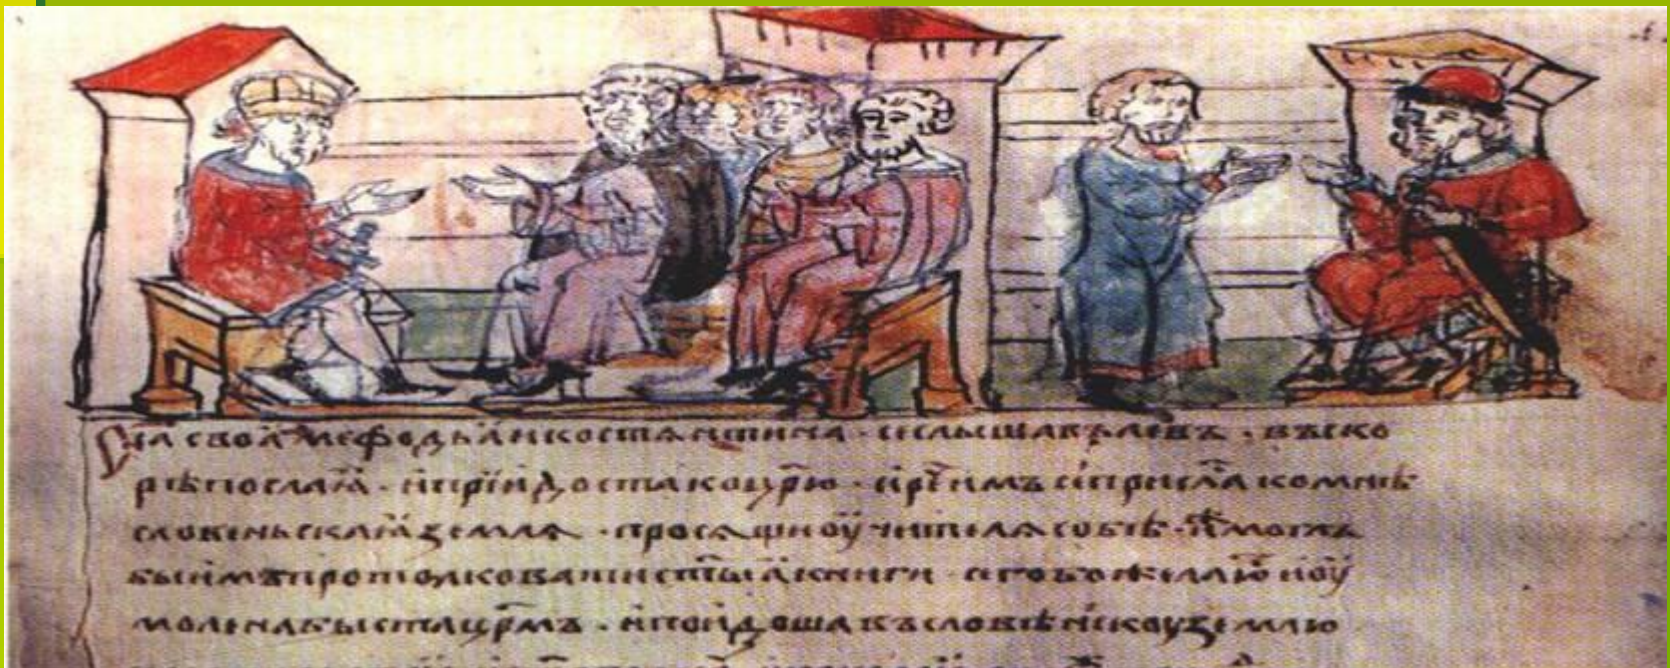 сн҃а своа мефодьа и костѧнтина · и слышавъ левъ · въско
рѣ посла ꙗ · и прїидоста ко цр҃ю · и реⷱ имъ се присла ко мнѣ
словеньскаа землѧ · просѧщи оучителѧ собѣ · иⷤ моглъ
бы имъ протолковати ст҃ыа книги · сего бо желаюⷮ и оу
молена быста цр҃мъ · и поидоша въ словѣньскоую землю